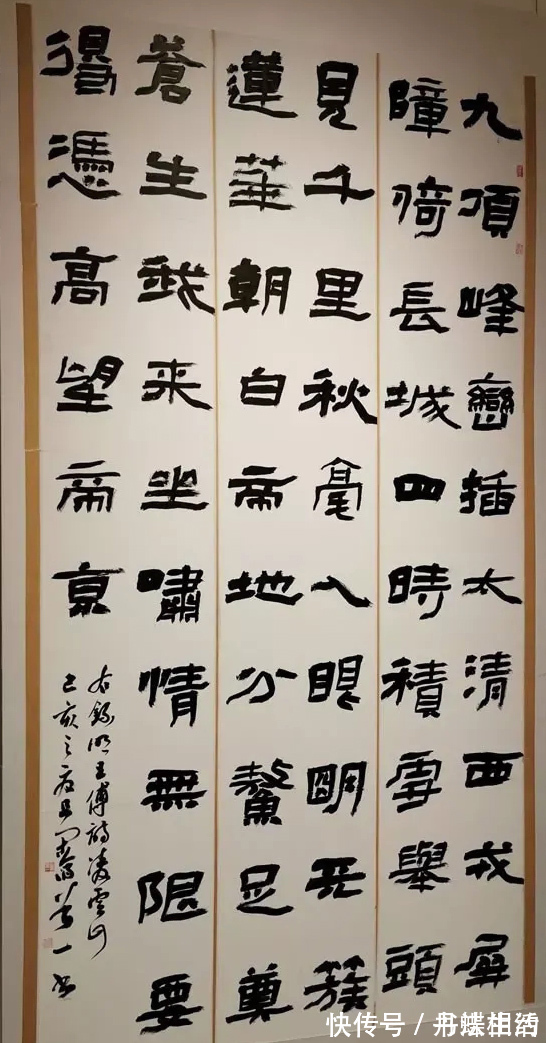 九頂峰巒插太清西戎屏
障倚長城四時積雪舉頭
見千里秋毫入眼明天簇
蓮華朝白帝地分鼇足奠
蒼生我来坐嘯情無限要
得憑高望帝京
右錄明王傅詩凌雲
己亥之
快传号 /